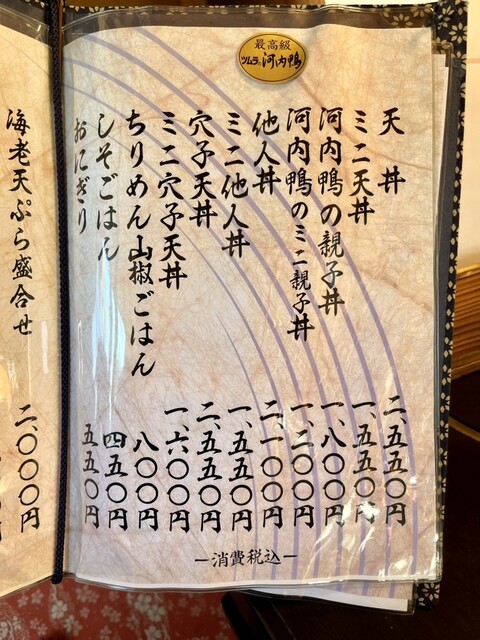 最高級
ツムラの河内鴨
天丼 二、五五〇円
ミニ天丼 一、五五〇円
河内鴨の親子丼 一、八〇〇円
河内鴨のミニ親子丼 一、二〇〇円
他人丼 二、一〇〇円
ミニ他人丼 一、五五〇円
穴子天丼 二、五五〇円
ミニ穴子天丼 一、六〇〇円
ちりめん山椒ごはん 八〇〇円
しそごはん 四五〇円
おにぎり 五五〇円
―消費税込―
海老天ぷら盛合せ 二、〇〇〇円